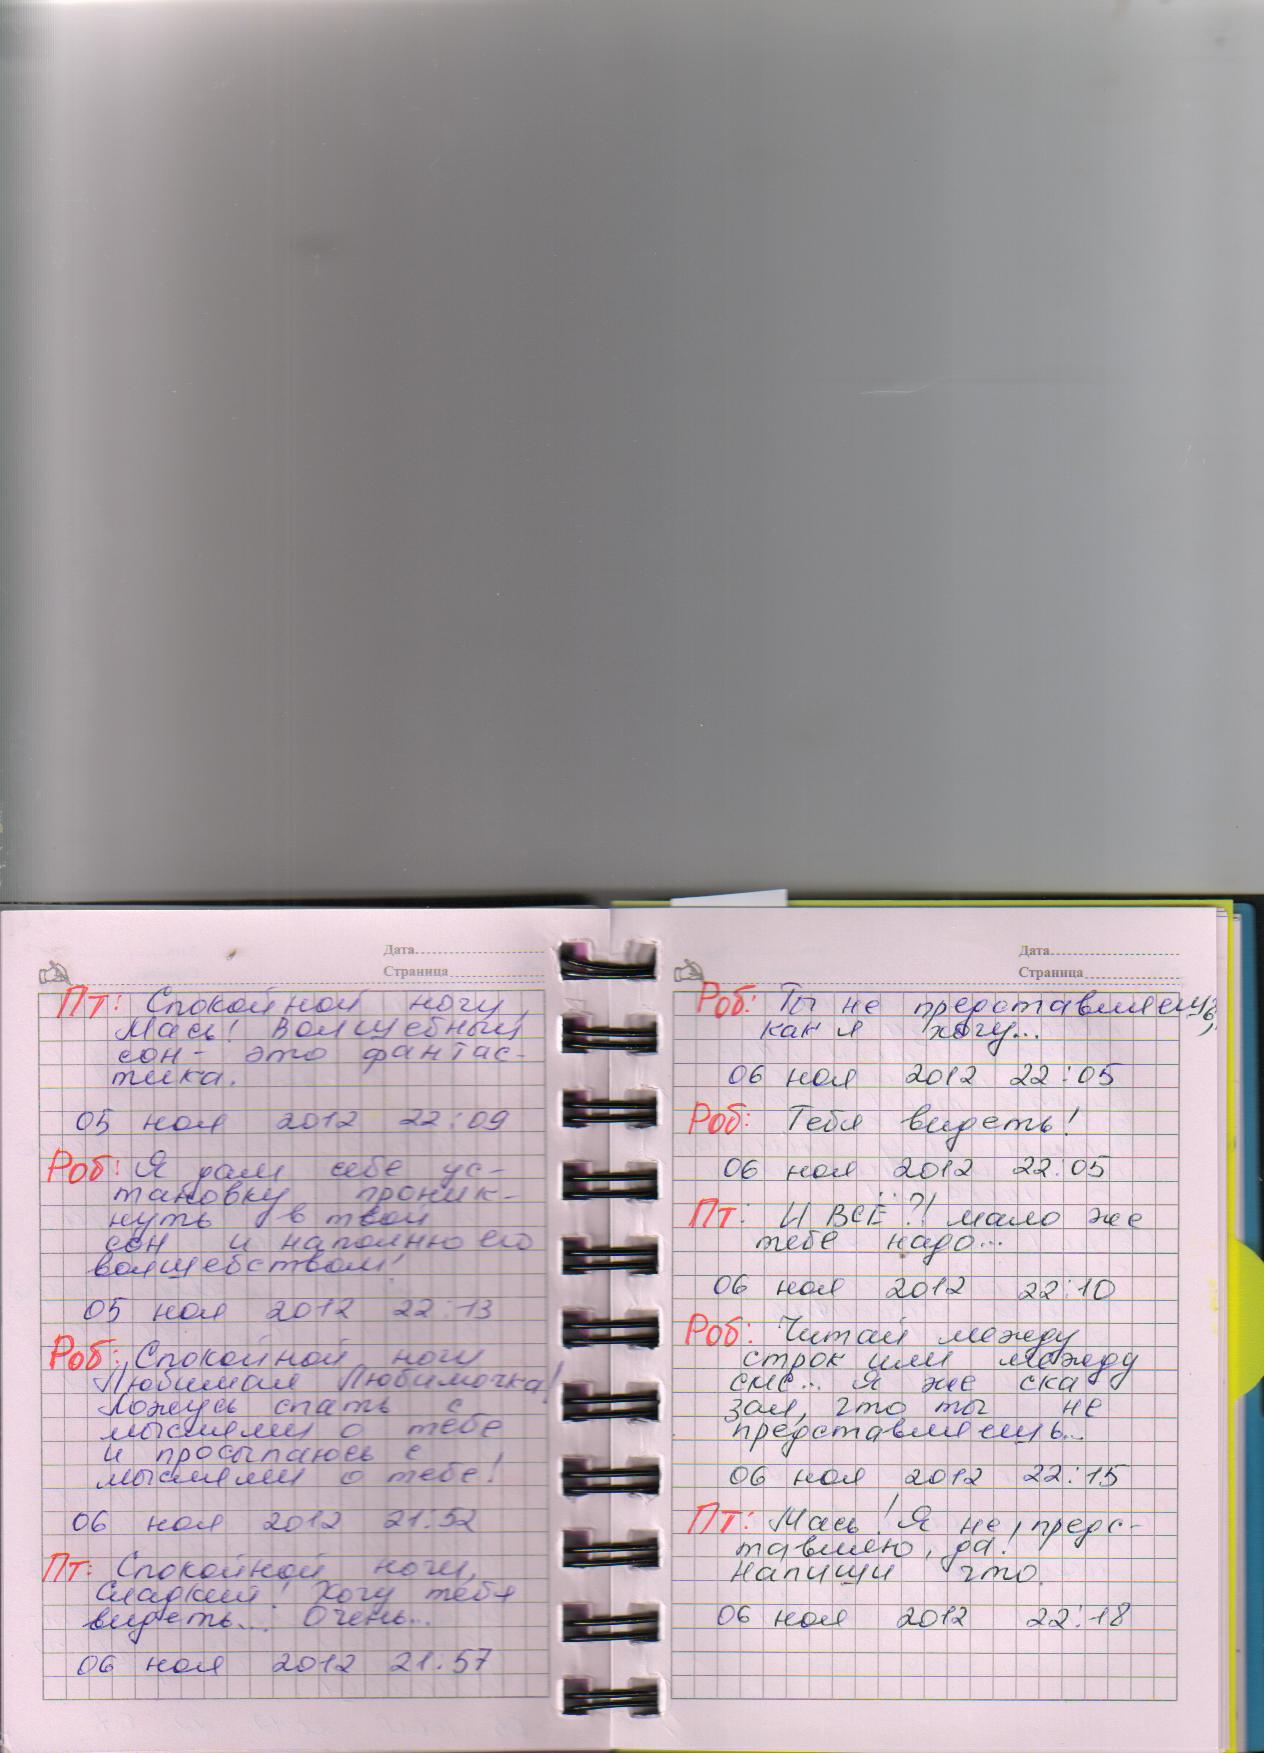 Дата
Страница
Пт: Спокойной ночи,
Мась! Волшебный
сон - это фантас-
тика.
05 ноя 2012 22:09
Роб: Я дам себе ус-
тановку проник-
нуть в твой
сон и наполню его
волшебством!
05 ноя 2012 22:13
Роб: Спокойной ночи
Любимая Любимочка!
Ложусь спать с
мыслями о тебе
и просыпаюсь с
мыслями о тебе!
06 ноя 2012 21:52
Пт: Спокойной ночи,
Сладкий! Хочу тебя
видеть... Очень...
06 ноя 2012 21:57
Дата
Страница
Роб: Ты не представляешь,
как я хочу...
06 ноя 2012 22:05
Роб: Тебя видеть!
06 ноя 2012 22:05
Пт: И ВСЁ?! мало же
тебе надо...
06 ноя 2012 22:10
Роб: Читай между
строк или между
смс... Я же ска
зал, что ты не
представляешь...
06 ноя 2012 22:15
Пт: Мась! Я не предс-
тавляю, да!
Напиши что.
06 ноя 2012 22:18